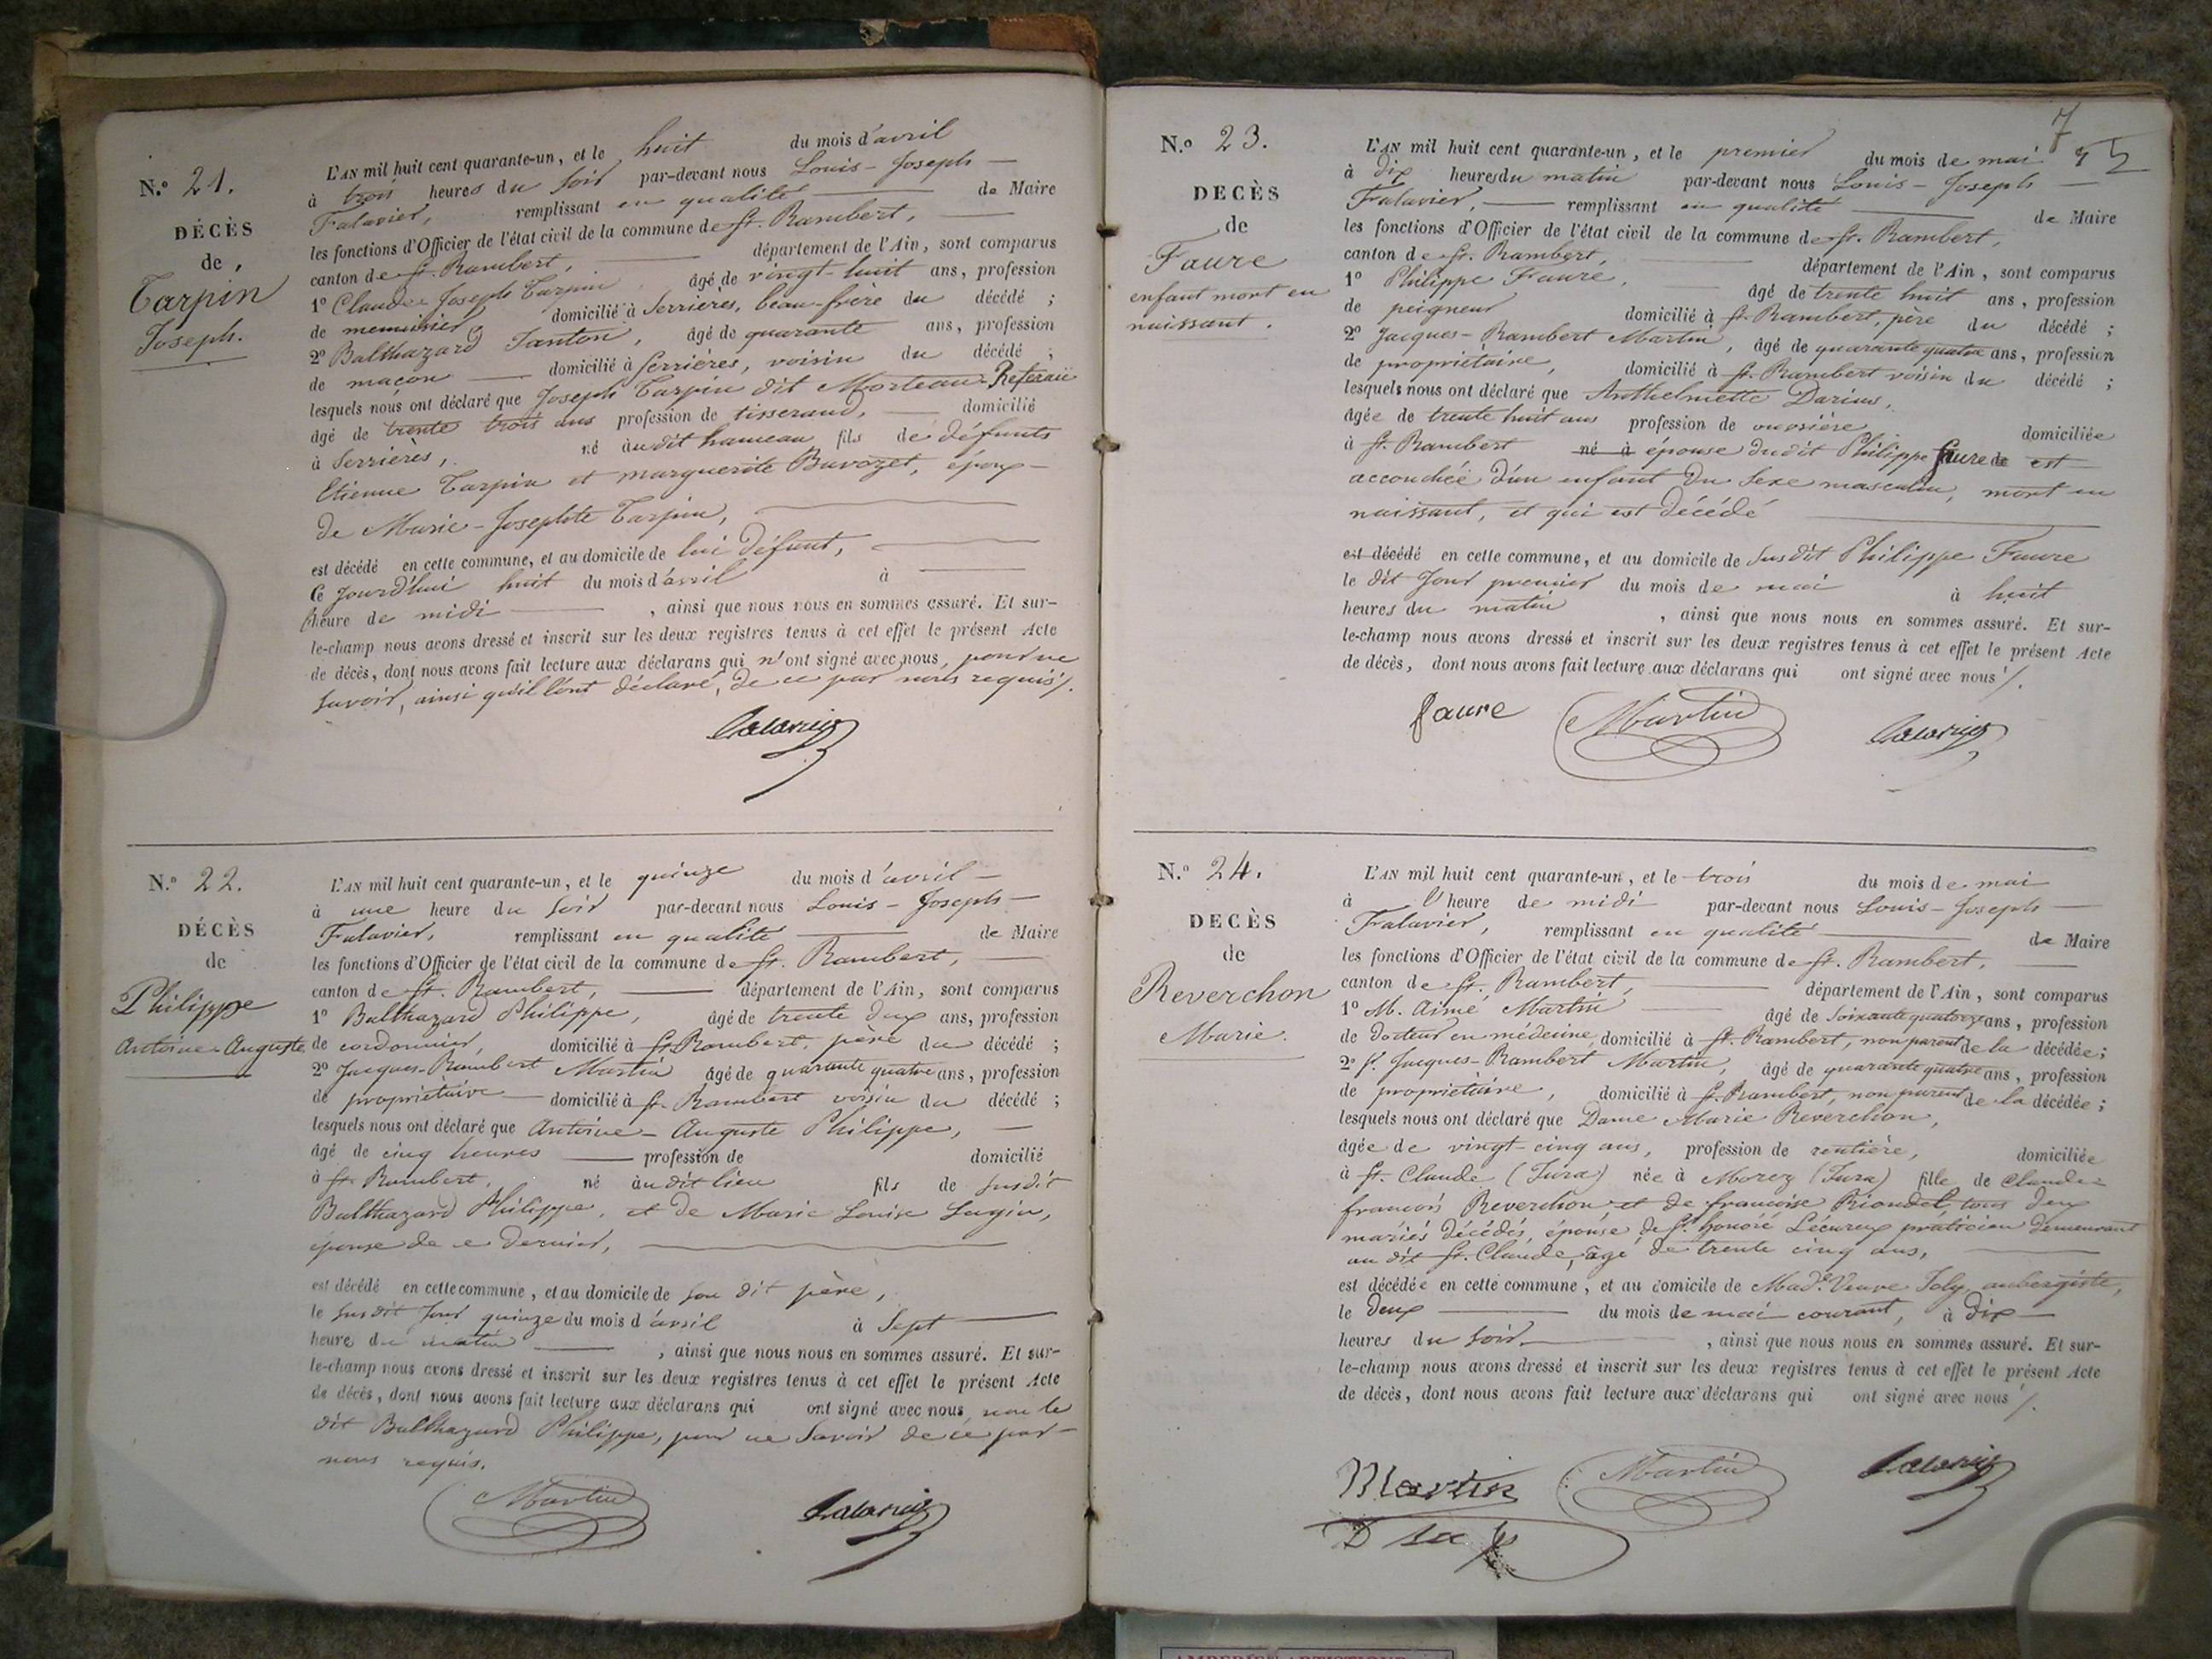 N.º 21.
DÉCÈS
de
Tarpin
Joseph.
L'AN mil huit cent quarante-un, et le huit du mois d'avril
à trois heures du soir par-devant nous Louis-Joseph
Falavier, remplissant en qualité de Maire
les fonctions d'Officier de l'état civil de la commune de St. Rambert,
canton de St. Rambert, département de l'Ain, sont comparus
1º Claude Joseph Tarpin âgé de vingt-huit ans, profession
de menuisier domicilié à Serrières, beau-frère du décédé ;
2º Balthazard Santon, âgé de quarante ans, profession
de maçon domicilié à Serrières, voisin du décédé ;
lesquels nous ont déclaré que Joseph Tarpin dit Morteau
âgé de trente trois ans profession de tisserand, domicilié
à Serrières, né audit hameau, fils de défunts
Etienne Tarpin et marguerite Buvozet, époux
de Marie-Josephte Tarpin,
est décédé en cette commune, et au domicile de lui défunt,
ce jourd'hui huit du mois d'avril à
l'heure de midi , ainsi que nous nous en sommes assuré. Et sur-
le-champ nous avons dressé et inscrit sur les deux registres tenus à cet effet le présent Acte
de décès, dont nous avons fait lecture aux déclarans qui n'ont signé avec nous, pour ne
savoir, ainsi qu'il l'ont déclaré, de ce par nous requis /.
Falavier
N.º 22.
DÉCÈS
de
Philippe
Antoine-Auguste
L'AN mil huit cent quarante-un, et le quinze du mois d'avril
à une heure du soir par-devant nous Louis-Joseph
Falavier, remplissant en qualité de Maire
les fonctions d'Officier de l'état civil de la commune de St. Rambert,
canton de St. Rambert, département de l'Ain, sont comparus
1º Balthazard Philippe, âgé de trente deux ans, profession
de cordonnier, domicilié à St. Rambert, père du décédé ;
2º Jacques-Rambert Martin âgé de quarante quatre ans, profession
de propriétaire domicilié à St. Rambert voisin du décédé ;
lesquels nous ont déclaré que Antoine-Auguste Philippe,
âgé de cinq heures profession de domicilié
à St. Rambert, né audit lieu fils de susdit
Balthazard Philippe, et de Marie Louise Sugin,
épouse de ce dernier,
est décédé en cette commune, et au domicile de son dit père,
le susdit jour quinze du mois d'avril à sept
heure du matin , ainsi que nous nous en sommes assuré. Et sur-
le-champ nous avons dressé et inscrit sur les deux registres tenus à cet effet le présent Acte
de décès, dont nous avons fait lecture aux déclarans qui ont signé avec nous, non le
dit Balthazard Philippe, pour ne savoir de ce par
nous requis.
Martin Falavier
7
N.º 23.
DECÈS
de
Faure
enfant mort en
naissant.
L'AN mil huit cent quarante-un, et le premier du mois de mai
à dix heures du matin par-devant nous Louis-Joseph
Falavier, remplissant en qualité de Maire
les fonctions d'Officier de l'état civil de la commune de St. Rambert,
canton de St. Rambert, département de l'Ain, sont comparus
1º Philippe Faure, âgé de trente huit ans, profession
de peigneur domicilié à St. Rambert, père du décédé ;
2º Jacques-Rambert Martin, âgé de quarante quatre ans, profession
de propriétaire, domicilié à St. Rambert voisin du décédé ;
lesquels nous ont déclaré que Anthelmette Darius,
âgée de trente huit ans profession de ouvrière domiciliée
à St. Rambert né à épouse dudit Philippe faure de est
accouchée d'un enfant du sexe masculin, mort en
naissant, et qui est décédé
est décédé en cette commune, et au domicile de susdit Philippe Faure
le dit jour premier du mois de mai à huit
heures du matin , ainsi que nous nous en sommes assuré. Et sur-
le-champ nous avons dressé et inscrit sur les deux registres tenus à cet effet le présent Acte
de décès, dont nous avons fait lecture aux déclarans qui ont signé avec nous /.
faure Martin Falavier
N.º 24.
DECÈS
de
Reverchon
Marie.
L'AN mil huit cent quarante-un, et le trois du mois de mai
à l'heure de midi par-devant nous Louis-Joseph
Falavier, remplissant en qualité de Maire
les fonctions d'Officier de l'état civil de la commune de St. Rambert,
canton de St. Rambert, département de l'Ain, sont comparus
1º M. Aimé Martin âgé de soixante quatorze ans, profession
de docteur en médecine, domicilié à St. Rambert, non parent de la décédée ;
2º St. Jacques-Rambert Martin, âgé de quarante quatre ans, profession
de propriétaire, domicilié à St. Rambert, non parent de la décédée ;
lesquels nous ont déclaré que Dame Marie Reverchon,
âgée de vingt-cinq ans, profession de rentière, domiciliée
à St. Claude (Jura) née à Morez (Jura) fille de Claude-
françois Reverchon et de françoise Riondel tous deux
mariés décédés, épouse de Sr. honoré Lécureux praticien demeurant
au dit St. Claude, âgé de trente cinq ans,
est décédée en cette commune, et au domicile de Made. Veuve Joly, aubergiste,
le deux du mois de mai courant, à dix
heures du soir , ainsi que nous nous en sommes assuré. Et sur-
le-champ nous avons dressé et inscrit sur les deux registres tenus à cet effet le présent Acte
de décès, dont nous avons fait lecture aux déclarans qui ont signé avec nous /.
Martin Martin Falavier